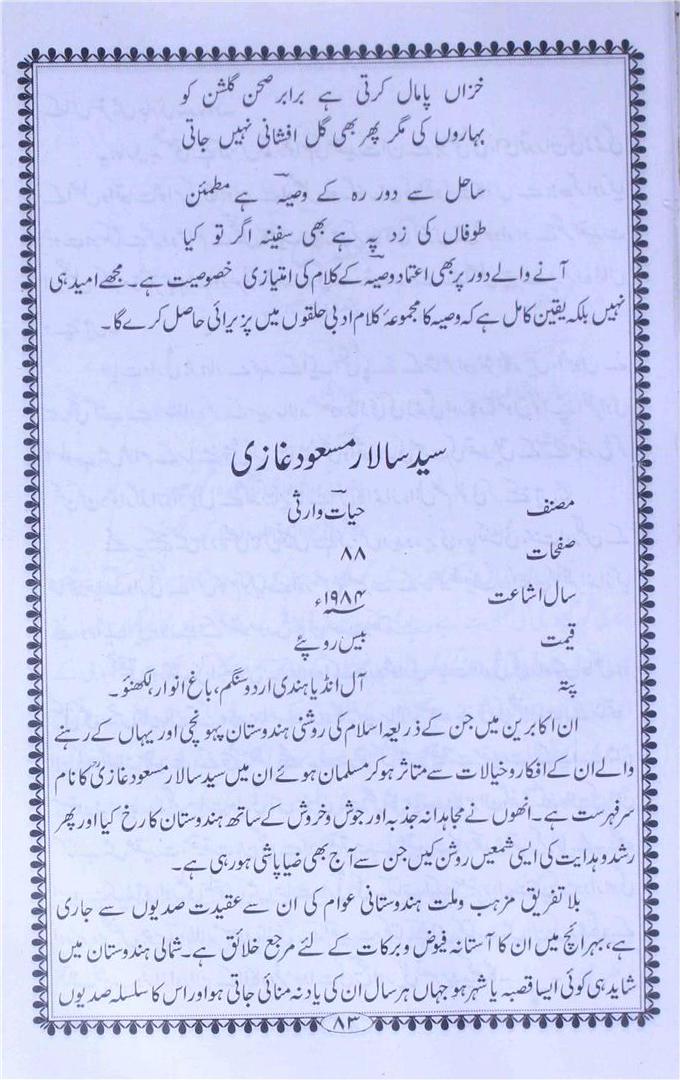 خزاں پامال کرتی ہے برابر صحن گلشن کو
بہاروں کی مگر پھر بھی گل افشانی نہیں جاتی
ساحل سے دور رہ کے وصیہؔ ہے مطمئن
طوفاں کی زد پہ ہے بھی سفینہ اگر تو کیا
آنے والے دور پر بھی اعتماد وصیہؔ کے کلام کی امتیازی خصوصیت ہے۔ مجھے امید ہی
نہیں بلکہ یقین کامل ہے کہ وصیہ کا مجموعۂ کلام ادبی حلقوں میں پزیرائی حاصل کرے گا۔
سید سالار مسعود غازی
مصنف حیات وارثی
صفحات ۸۸
سال اشاعت ۱۹۸۴ء
قیمت بیس روپئے
پتہ آل انڈیا ہندی اردو سنگم، باغ انوار، لکھنؤ۔
ان اکابرین میں جن کے ذریعہ اسلام کی روشنی ہندوستان پہونچی اور یہاں کے رہنے
والے ان کے افکار و خیالات سے متاثر ہوکر مسلمان ہوئے ان میں سید سالار مسعود غازیؒ کا نام
سرفہرست ہے۔ انھوں نے مجاہدانہ جذبہ اور جوش و خروش کے ساتھ ہندوستان کا رخ کیا اور پھر
رشد و ہدایت کی ایسی شمعیں روشن کیں جن سے آج بھی ضیا پاشی ہو رہی ہے۔
بلا تفریق مزہب و ملت ہندوستانی عوام کی ان سے عقیدت صدیوں سے جاری
ہے، بہرائچ میں ان کا آستانہ فیوض و برکات کے لئے مرجع خلائق ہے۔ شمالی ہندوستان میں
شاید ہی کوئی ایسا قصبہ یا شہر ہو جہاں ہر سال ان کی یاد نہ منائی جاتی ہو اور اس کا سلسلہ صدیوں
۸۳